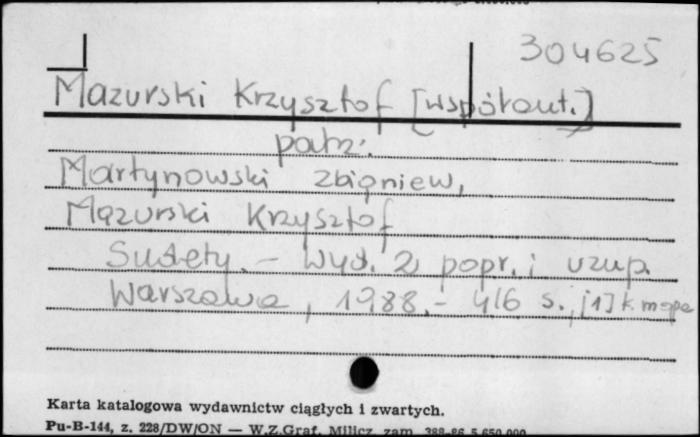 304625
Mazurski Krzysztof [współaut.]
patrz:
Martynowski Zbigniew,
Mazurski Krzysztof
Sudety. - Wyd. 2 popr. i uzup.
Warszawa, 1988. - 416 s., [1] k. mapa
Karta katalogowa wydawnictw ciągłych i zwartych.
Pu-B-144, z. 228/DW/ON — W.Z.Graf. Milicz, zam. 388-86 5.650.000